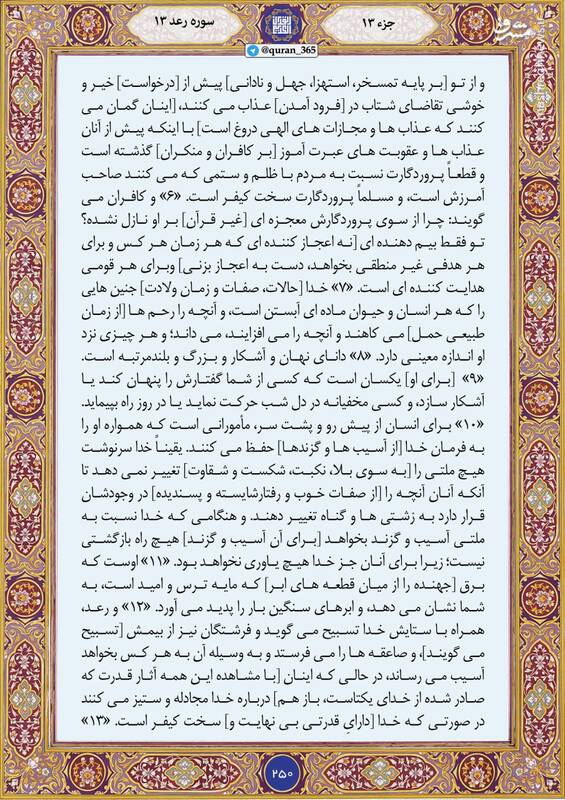 جزء ۱۳
سوره رعد ۱۳
@quran_365
مشرق
و از تو [بر پایه تمسخر، استهزا، جهل و نادانی] پیش از [درخواست] خیر و
خوشی تقاضای شتاب در [فرود آمدن] عذاب می کنند، [اینان گمان می
کنند که عذاب ها و مجازات های الهی دروغ است] با اینکه پیش از آنان
عذاب ها و عقوبت های عبرت آموز [بر کافران و منکران] گذشته است
و قطعاً پروردگارت نسبت به مردم با ظلم و ستمی که می کنند صاحب
آمرزش است، و مسلماً پروردگارت سخت کیفر است. «۶» و کافران می
گویند: چرا از سوی پروردگارش معجزه ای [غیر قرآن] بر او نازل نشده؟
تو فقط بیم دهنده ای [نه اعجاز کننده ای که هر زمان هر کس و برای
هر هدفی غیر منطقی بخواهد، دست به اعجاز بزنی] وبرای هر قومی
هدایت کننده ای است. «۷» خدا [حالات، صفات و زمان ولادت] جنین هایی
را که هر انسان و حیوان ماده ای آبستن است، و آنچه را رحم ها [از زمان
طبیعی حمل] می کاهند و آنچه را می افزایند، می داند؛ و هر چیزی نزد
او اندازه معینی دارد. «۸» دانای نهان و آشکار و بزرگ و بلندمرتبه است.
«۹» [برای او] یکسان است که کسی از شما گفتارش را پنهان کند یا
آشکار سازد، و کسی مخفیانه در دل شب حرکت نماید یا در روز راه بپیماید.
«۱۰» برای انسان از پیش رو و پشت سر، مأمورانی است که همواره او را
به فرمان خدا [از آسیب ها و گزندها] حفظ می کنند. یقیناً خدا سرنوشت
هیچ ملتی را [به سوی بلا، نکبت، شکست و شقاوت] تغییر نمی دهد تا
آنکه آنان آنچه را [از صفات خوب و رفتارشایسته و پسندیده] در وجودشان
قرار دارد به زشتی ها و گناه تغییر دهند. و هنگامی که خدا نسبت به
ملتی آسیب و گزند بخواهد [برای آن آسیب و گزند] هیچ راه بازگشتی
نیست؛ زیرا برای آنان جز خدا هیچ یاوری نخواهد بود. «۱۱» اوست که
برق [جهنده را از میان قطعه های ابر] که مایه ترس و امید است، به
شما نشان می دهد، و ابرهای سنگین بار را پدید می آورد. «۱۲» و رعد،
همراه با ستایش خدا تسبیح می گوید و فرشتگان نیز از بیمش [تسبیح
می گویند]، و صاعقه ها را می فرستد و به وسیله آن به هر کس بخواهد
آسیب می رساند، در حالی که اینان [با مشاهده این همه آثار قدرت که
صادر شده از خدای یکتاست، باز هم] درباره خدا مجادله و ستیز می کنند
در صورتی که خدا [دارایِ قدرتی بی نهایت و] سخت کیفر است. «۱۳»
۲۵۰